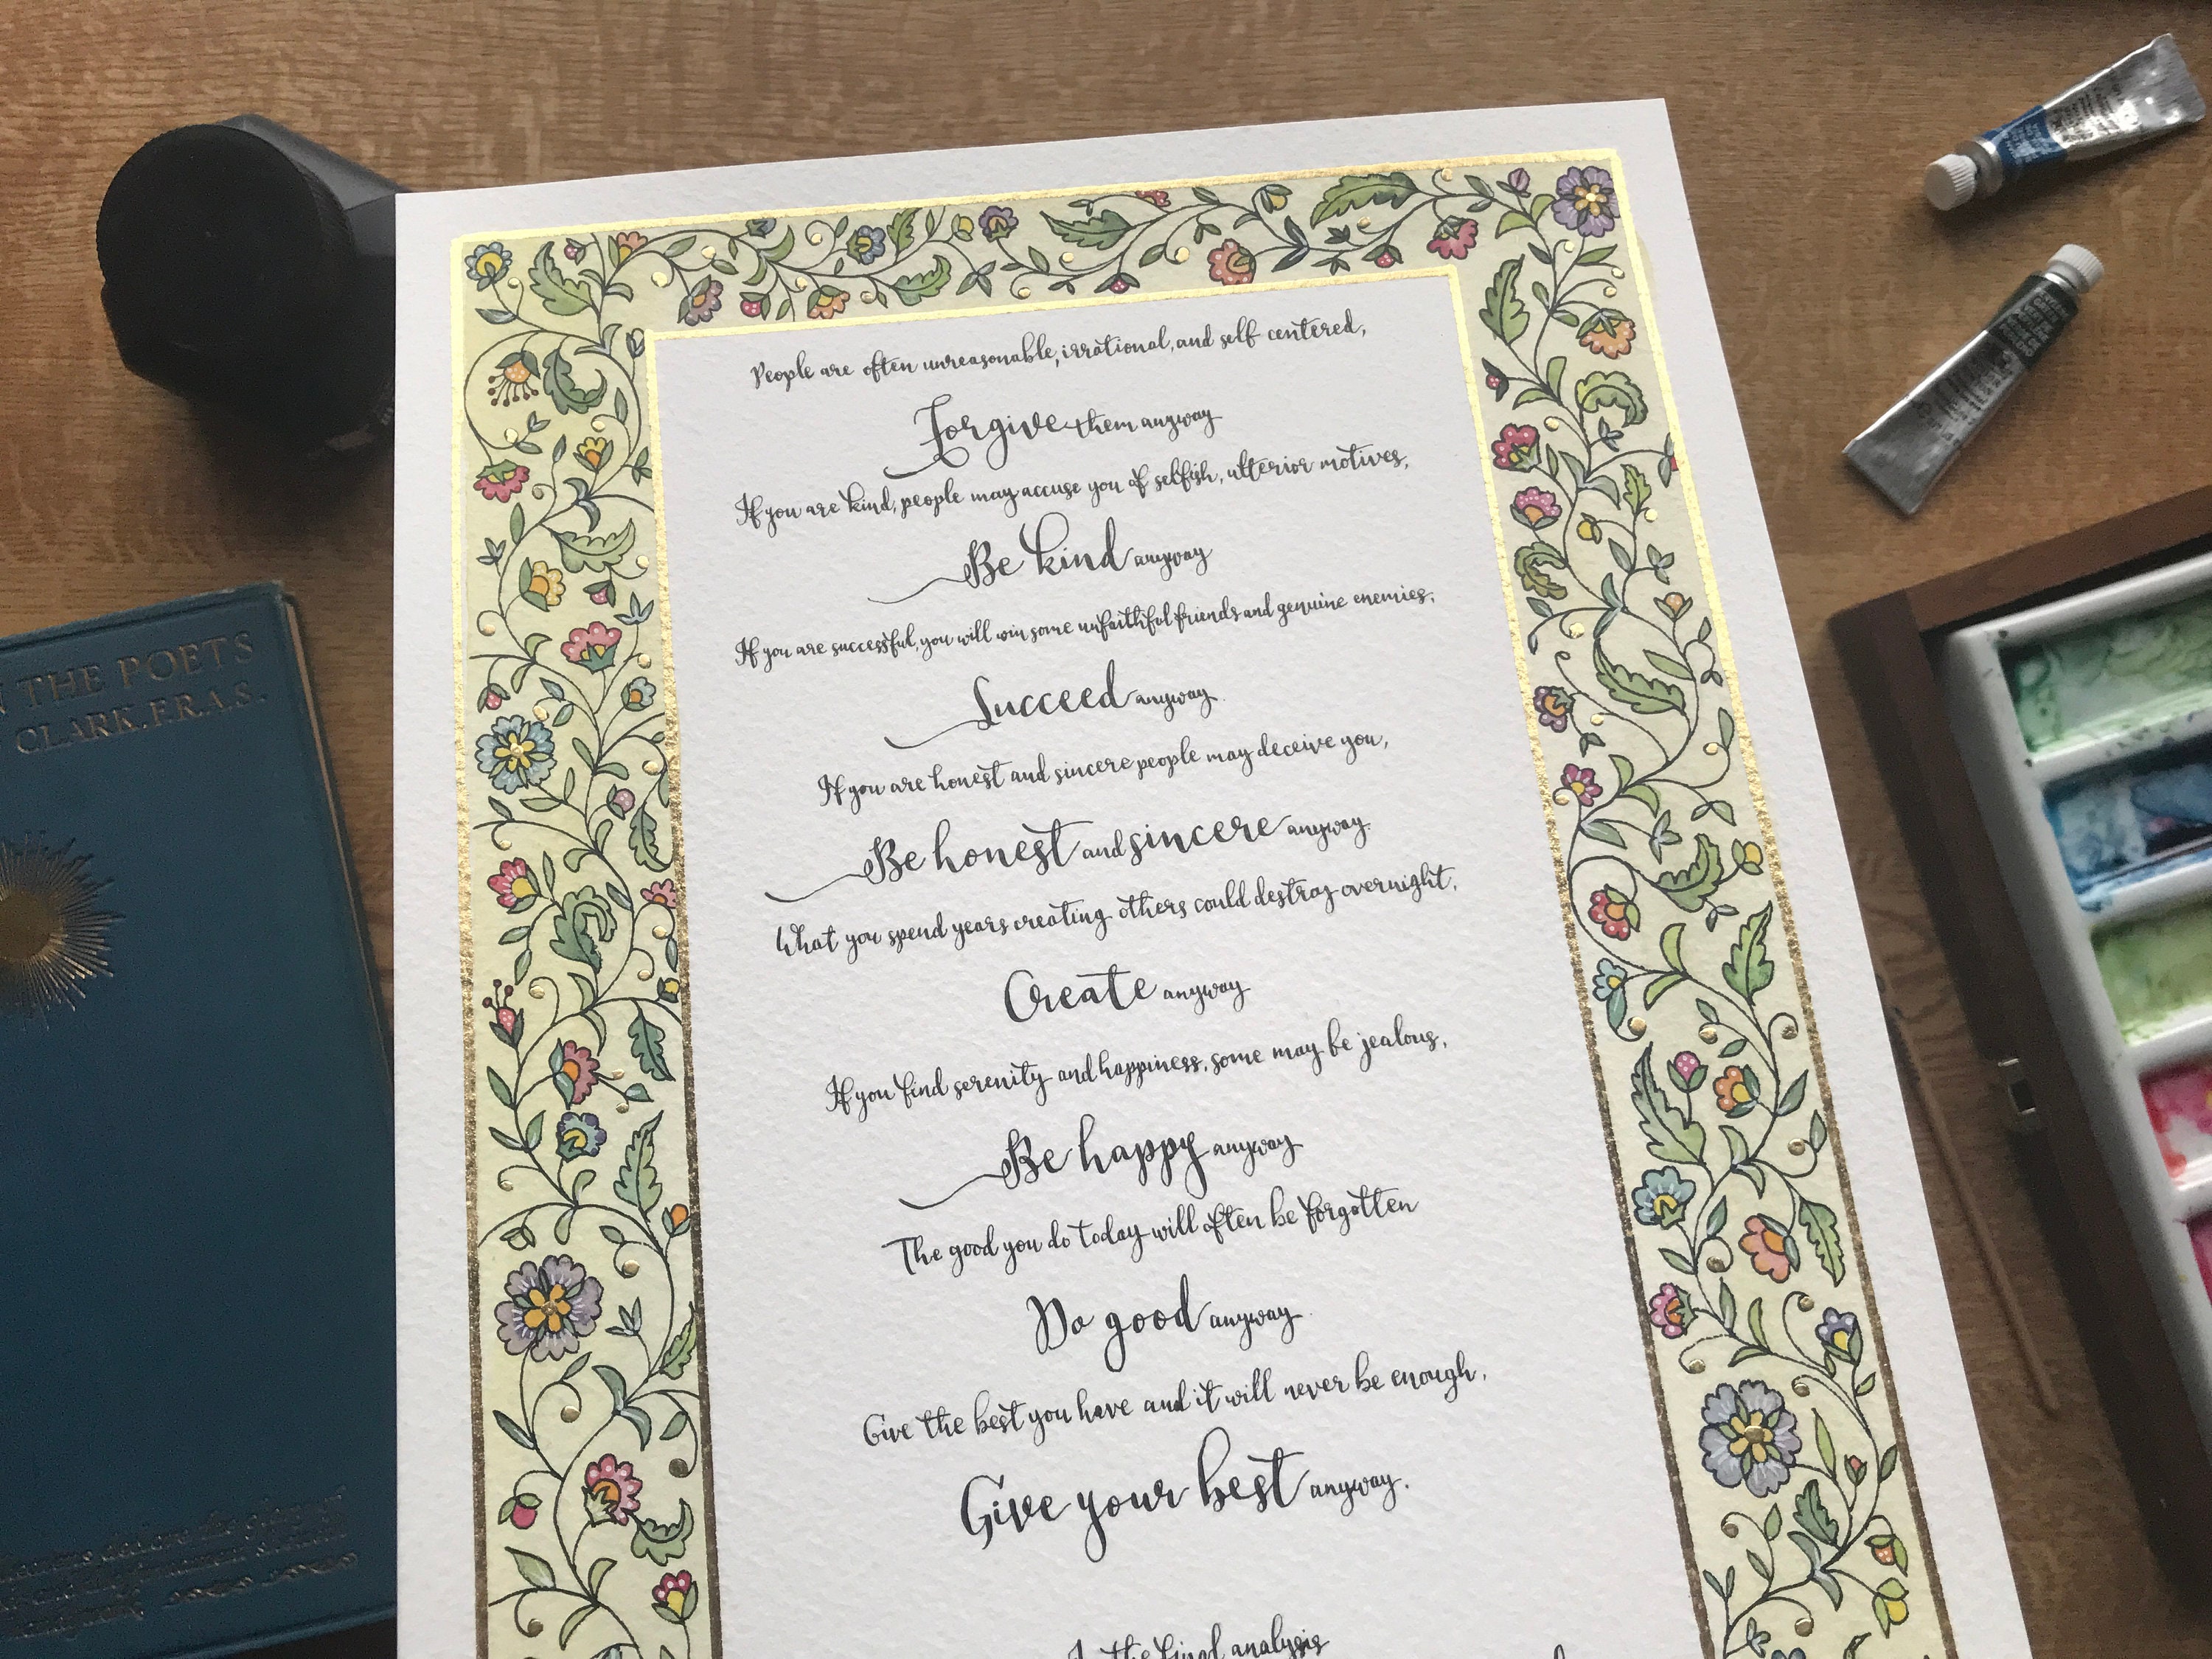 People are often unreasonable, irrational, and self centered,
Forgive them anyway
If you are kind, people may accuse you of selfish, ulterior motives,
Be kind anyway
If you are successful, you will win some unfaithful friends and genuine enemies,
Succeed anyway.
If you are honest and sincere people may deceive you,
Be honest and sincere anyway.
What you spend years creating others could destroy overnight,
Create anyway
If you find serenity and happiness, some may be jealous,
Be happy anyway
The good you do today will often be forgotten
Do good anyway.
Give the best you have and it will never be enough.
Give your best anyway.
In the final analysis
THE POETS
CLARK, F.R.A.S.